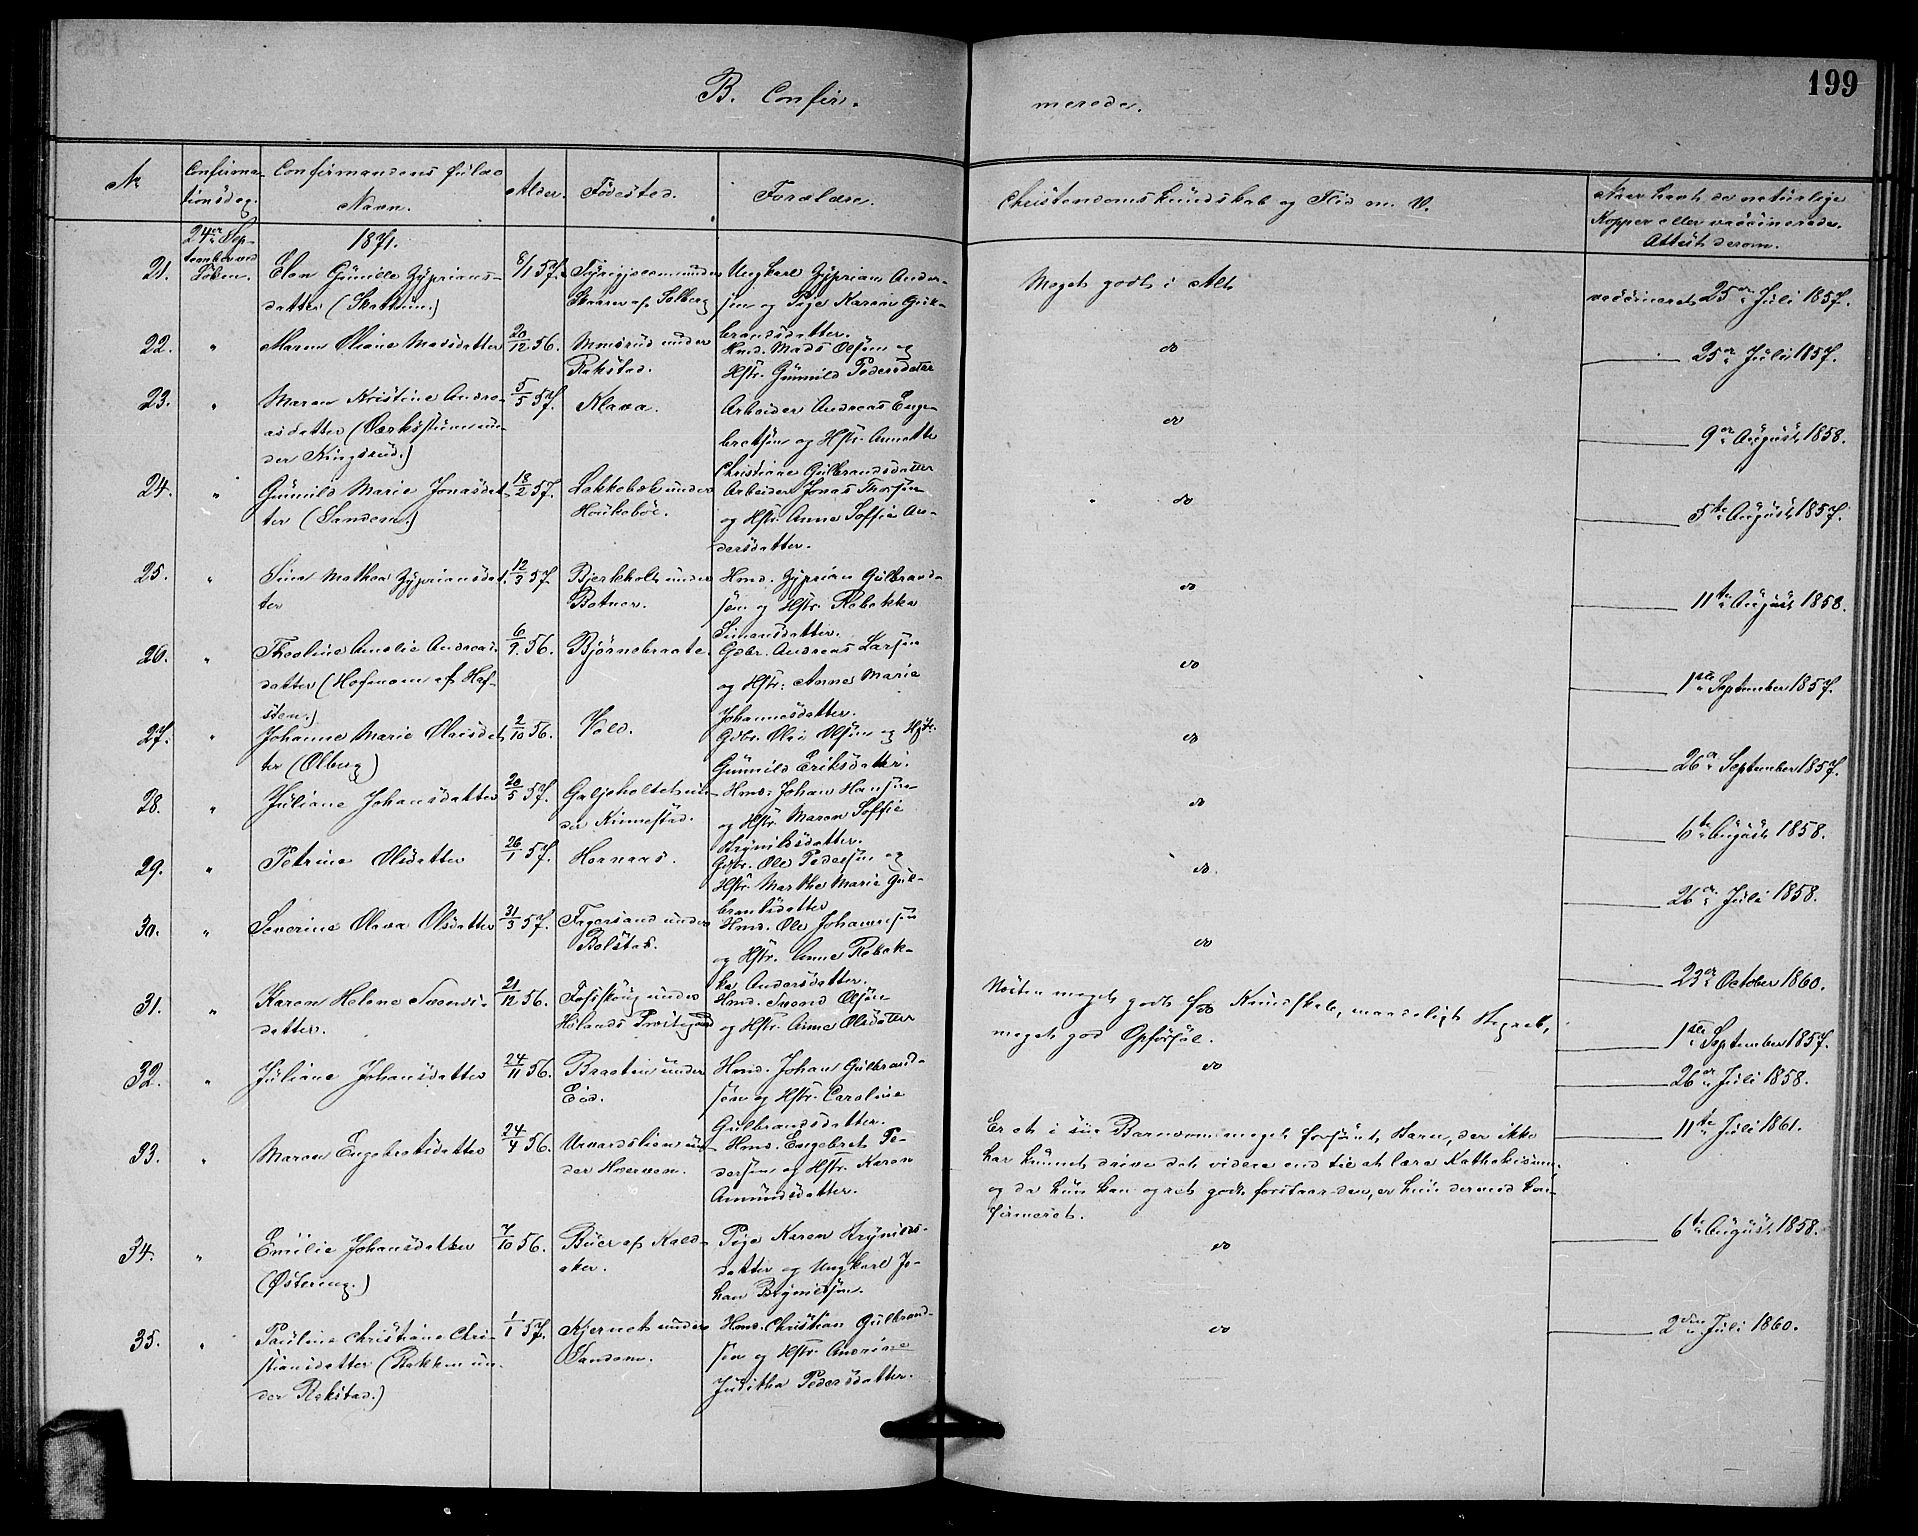 199
B. Confir-
merede.
No
Confirma-
tionsdag.
Confirmandens fulde
Navn.
Alder.
Fødested.
Forældre.
Christendomskundskab og Flid m. V.
Naar havt de naturlige
Kopper eller vaccinerede.
Attest derom.
24er Sep-
tember ved
Løken.
1871.
21.
Elen Gunilde Zyprians-
datter (Skattum.)
8/1 57.
under
Skaaren af Solberg
Ungkarl Zyprian Ander-
sen og Pige Karen Gul-
brandsdatter.
Meget godt i Alt
vaccineret 25de Juli 1857.
22. "
Maren Oliane Madsdatter
20/12 56.
Momsrud under
Rakstad.
Hmd. Mads Olsen og
Hstr. Gunnild Pedersdatter
do
25de Juli 1857.
23. "
Maren Kristine Andre-
asdatter (Værksstuen un-
der Kingsrud.)
5/5 57.
Klava.
Arbeider Andreas Enge-
bretsen og Hstr. Annette
Christiane Gulbrandsdatter
do
9de August 1858.
24. "
Gunnild Marie Jonasdat-
ter (Sandem.)
18/2 57.
Lakkebæk under
Houkebøl.
Arbeider Jonas Thorsen
og Hstr. Anne Soffie An-
dersdatter.
" do
5te August 1857.
25. "
Sina Mathea Zypriansdat-
ter
12/3 57.
Bjerkholt under
Botner.
Hmd. Zyprian Gulbrand-
sen og Hstr. Rebekka
Simensdatter.
do
11te August 1858.
26. "
Theoline Amalie Andreas-
datter (Hofmoen af Hof-
sten.)
6/9 56.
Bjørnebraate.
Gdbr. Andreas Larsen
og Hstr. Anne Marie
Johannesdatter.
do
1ste September 1857.
27. "
Johanne Marie Olausdat-
ter (Ølberg)
2/10 56.
Vold.
Gdbr. Ole Olsen og Hstr.
Gunnild Eriksdatter.
do
26de September 1857.
28. "
Juliane Johansdatter
20/5 57.
Galjeholtet un-
der Kinnestad.
Hmd. Johan Hansen
og Hstr. Maren Soffie
Brynildsdatter.
do
6te August 1858.
29. "
Petrine Olsdatter
26/1 57.
Hornaas.
Gdbr. Ole Pedersen og
Hstr. Marthe Marie Gul-
brandsdatter
do.
26de Juli 1858.
30. "
Severine Olava Olsdatter
31/3 57.
Fagersand under
Bolstad.
Hmd. Ole Johannesen
og Hstr. Anne Rebek-
ka Andersdatter.
do
23de October 1860.
31. "
Karen Helene Svends-
datter.
21/12 56.
Fosskoug under
Hølands Prestegaard
Hmd. Svend Olsen
og Hstr. Anne Olsdatter
Næsten meget godt for Kundskab, maadeligt Begreb,
meget god Opførsel.
do
1ste September 1857.
32. "
Juliane Johansdatter
24/11 56.
Braaten under
Eid.
Hmd. Johan Gulbrand-
sen og Hstr. Caroline
Gulbrandsdatter.
do
26de Juli 1858.
33. "
Maren Engebretsdatter
24/4 56.
Urvardslien un-
der Haneren.
Hmd. Engebret Pe-
dersen og Hstr. Karen
Amundsdatter.
Er et i sin Barndom meget forsømt Barn, der ikke
har kunnet drive det videre end til at lære Kathekismus,
og da hun kan og ret godt forstaar den, er hun dermed kon-
firmeret.
11te Juli 1861.
34. "
Emilie Johansdatter
(Østereng.)
7/10 56.
Buer af Kald-
aker.
Pige Karen Brynilds-
datter og Ungkarl Jo-
han Brynildsen.
do
6te August 1858.
35. "
Pauline Christiane Chri-
stiansdatter (Bakken un-
der Rakstad.)
1/1 57.
Kjernet under
Sandem.
Hmd. Christian Gulbrand-
sen og Hstr. Andrine
Juditha Pedersdatter.
do
2den Juli 1860.